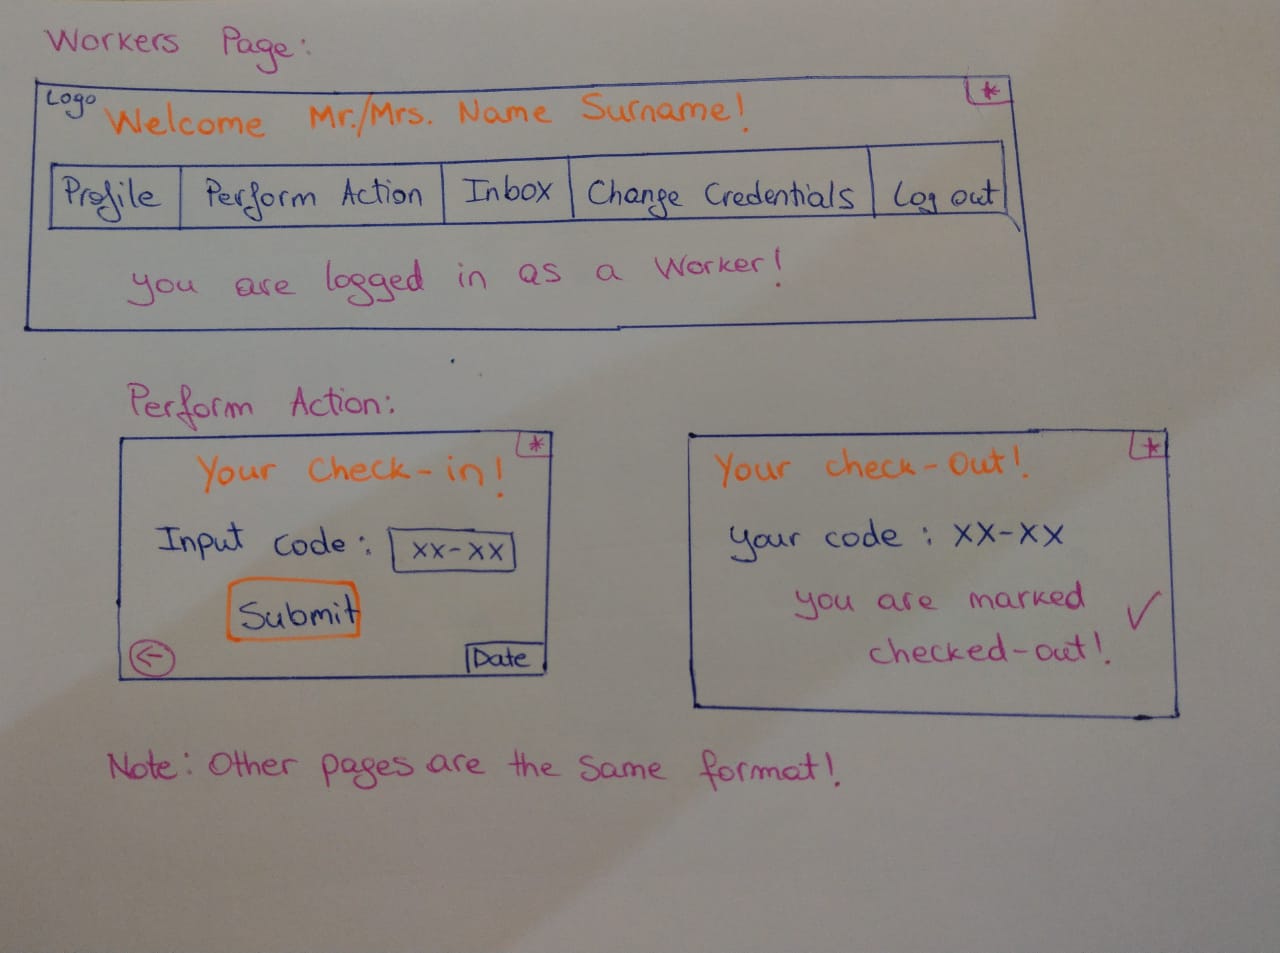 Workers Page:
Logo
Welcome Mr./Mrs. Name Surname!
*
Profile
Perform Action
Inbox
Change Credentials
Log out
you are logged in as a Worker!
Perform Action:
*
Your Check-in!
Input code: xx-xx
Submit
←
Date
*
Your check-Out!
your code : xx-xx
you are marked ✓
checked-out!
Note: Other pages are the same format!